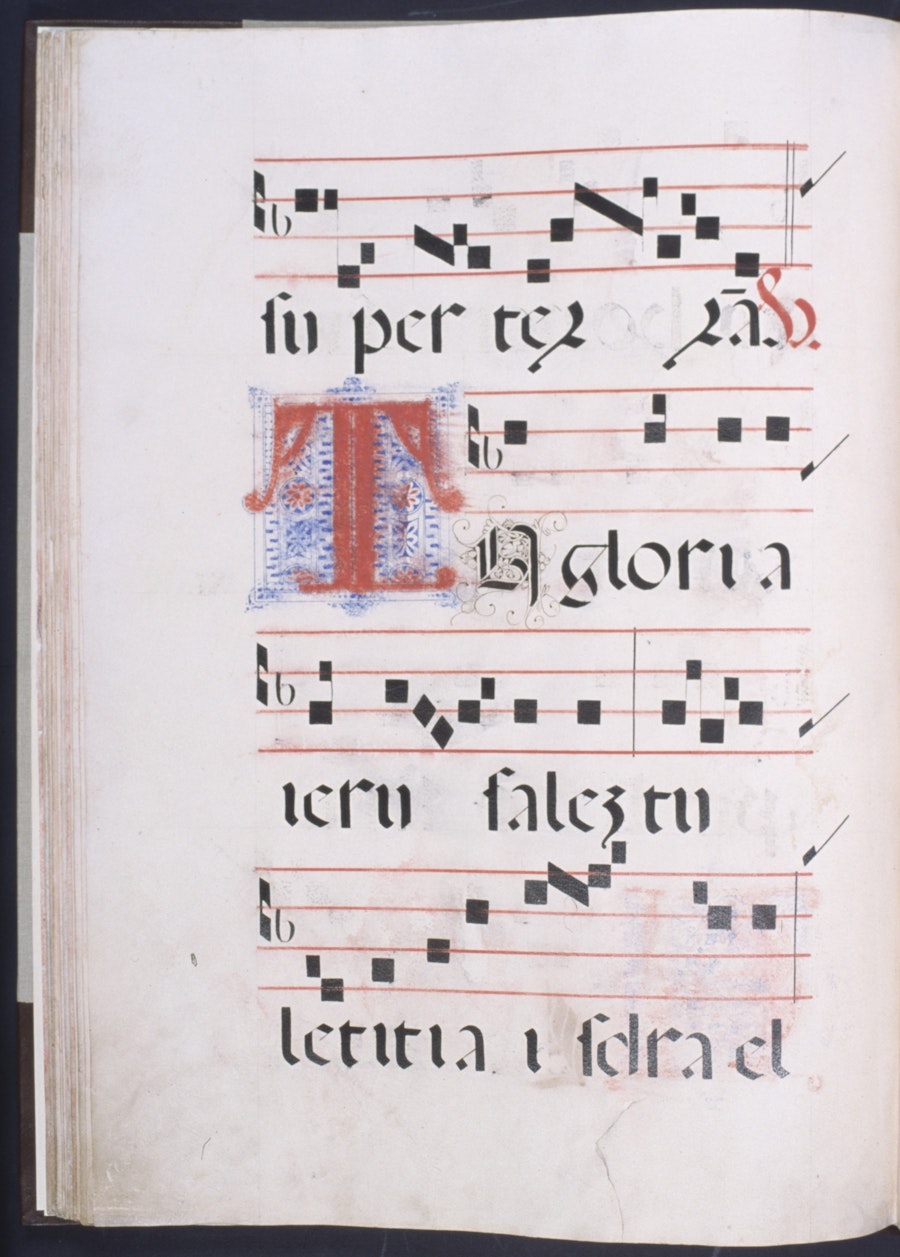 ſu per ter rā. ℣.
TU gloria
ieru ſaleꝫ tu
letitia i ſdra el